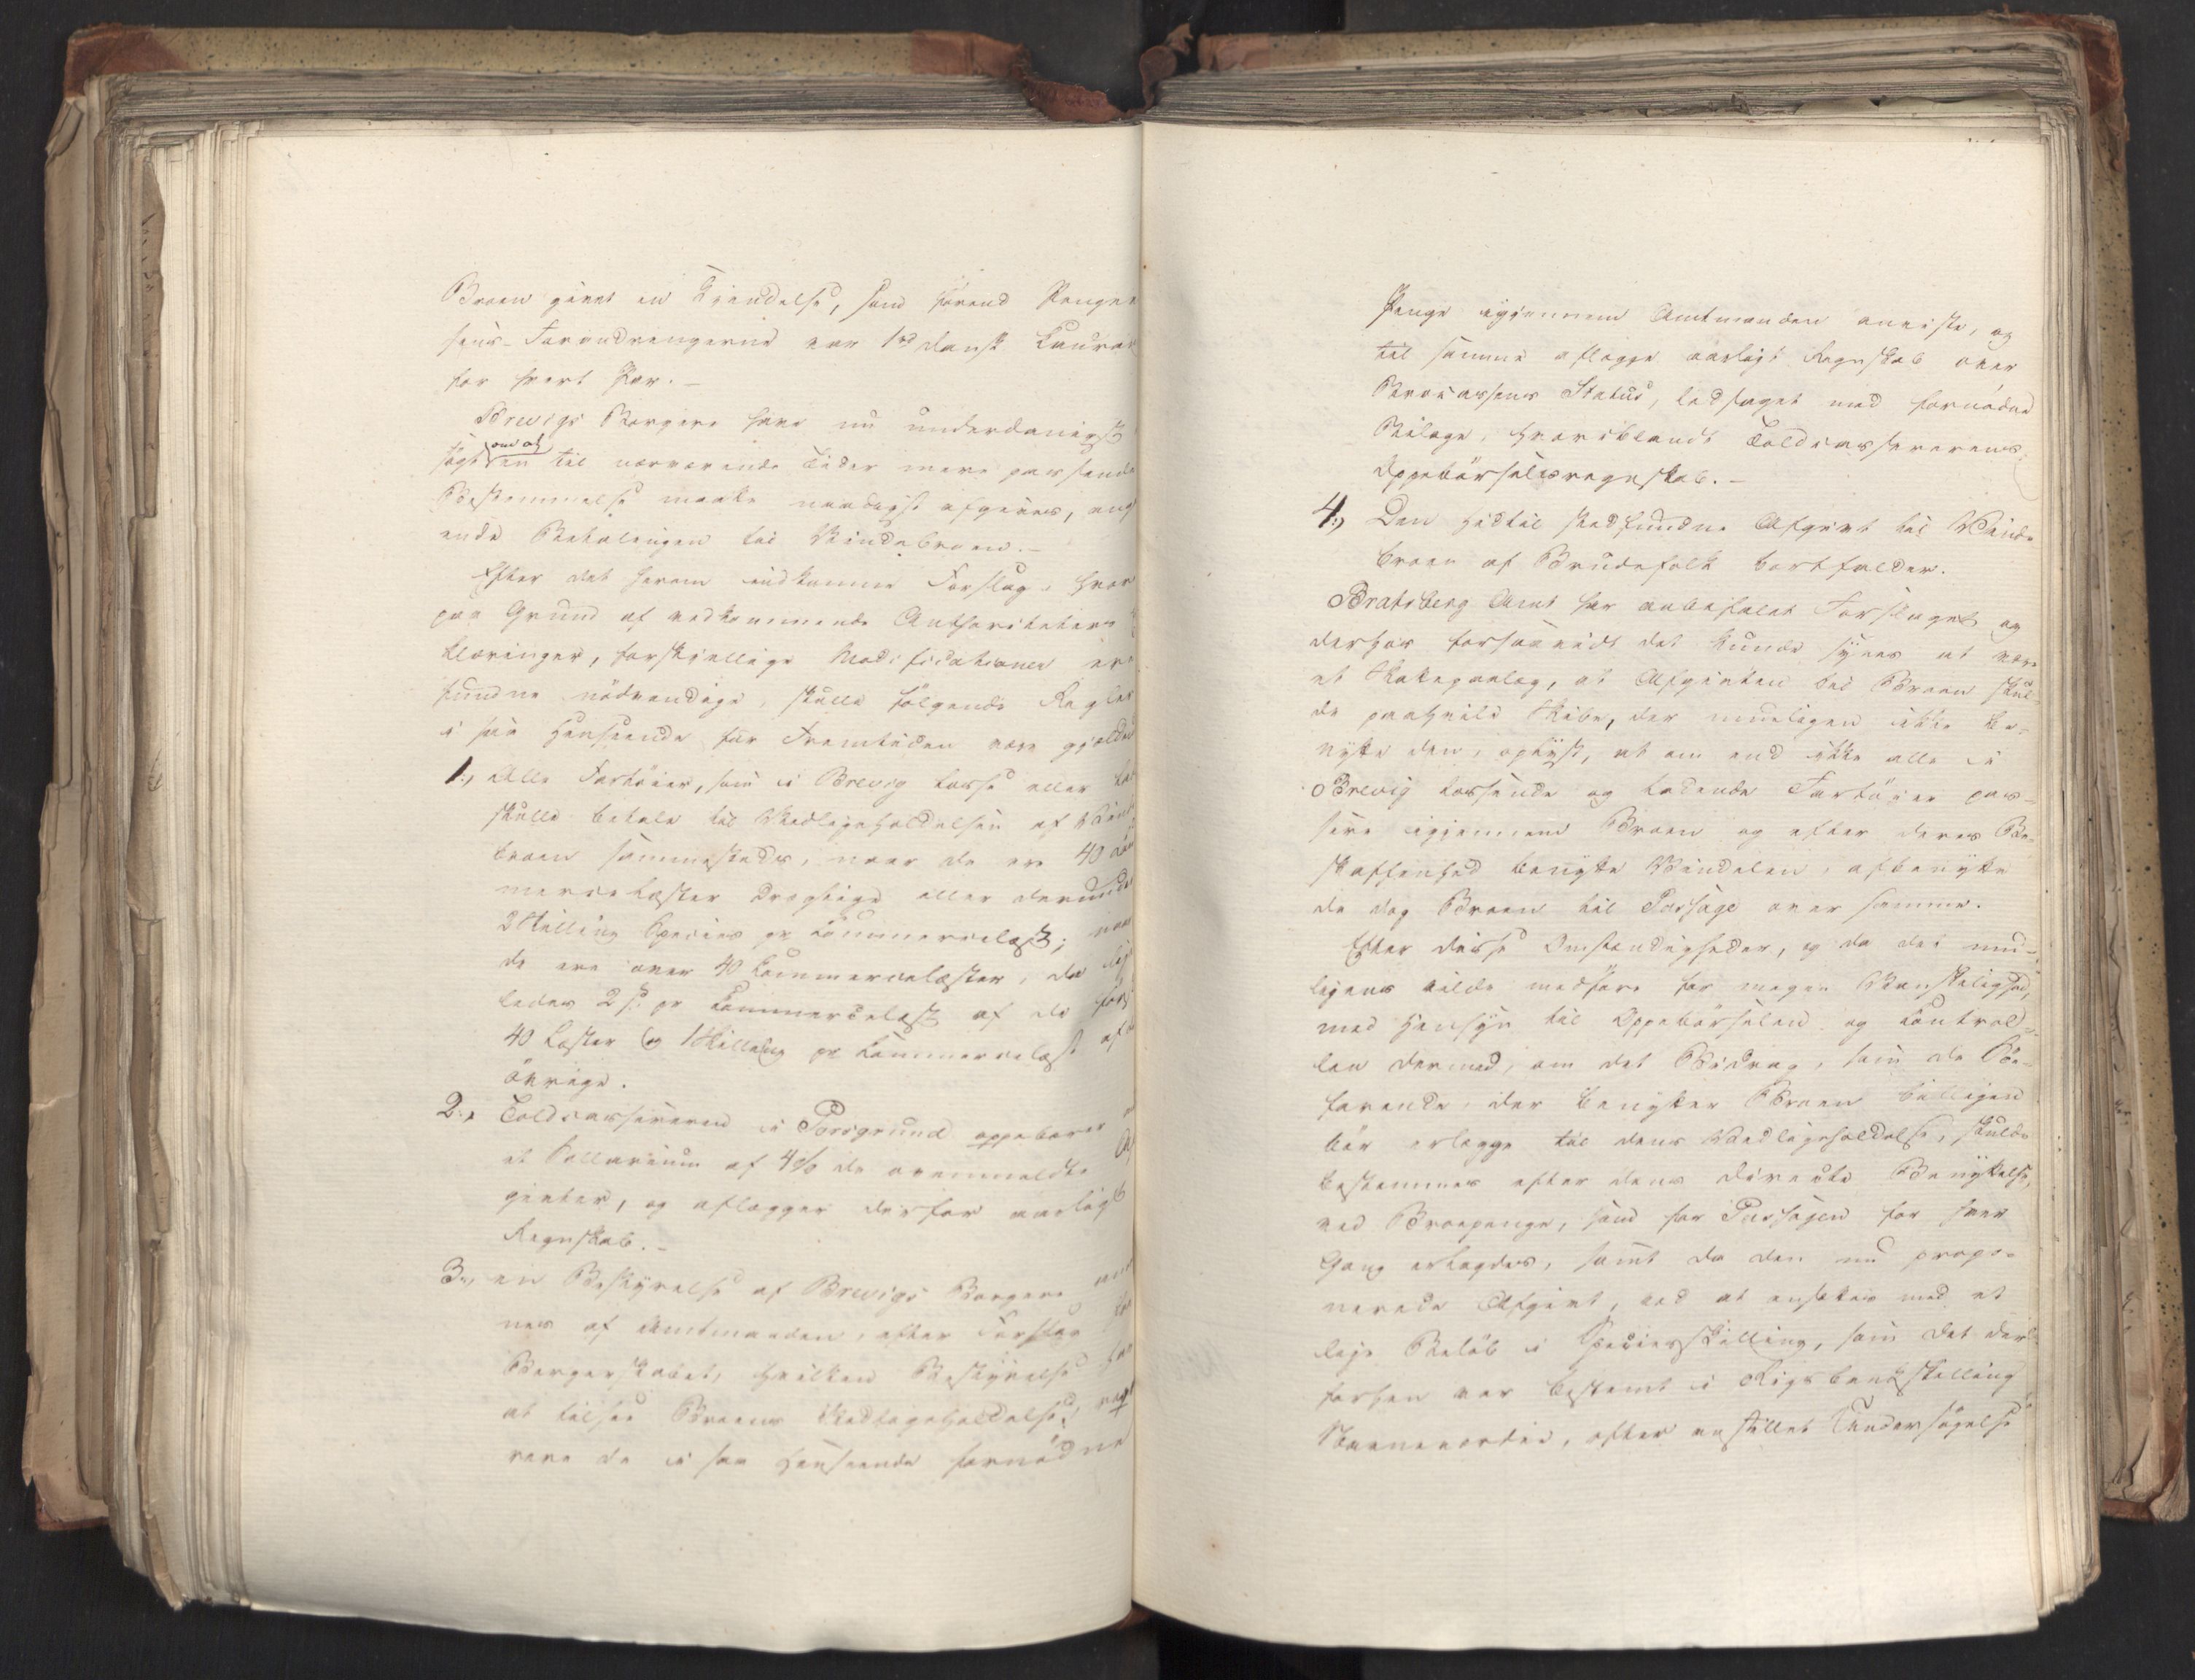 Broen giver en Kjendelse, som förend Penge
sens-Forandringerne var 1 rd dansk Courant
for hvert Par. –
Brevigs Borgere have nu underdanigst
søgt om at en til nærværende Tider mere passende
Bestemmelse maatte naadigst afgives, ang
ende Betalingen til Vindebroen. –
Efter det herom indkomne Forslag, hvor
paa Grund af vedkommende Authoriteters
klæringer, forskjellige Modificationer ere
fundne nödvendige, skulle fölgende Regler
i saa Henseende for Fremtiden være gjælden
1., Alle Fartöier, som i Brevig losse eller la
skulle betale til Vedligeholdelsen af Vinde
broen sammesteds, naar de ere 40 Com
mercelæster drægtige eller derunder
2 Skilling Species pr Commercelæst; naar
de ere over 40 Commercelæster, da lige
ledes 2 s. pr Commercelæst af de förs
40 Læster og 1 Skilling pr Commercelæst af de
övrige.
2., Toldcassereren i Porsgrund oppebærer
et Sallarium af 4 % de ovenmeldte Af
givter, og aflægger derfor aarligt
Regnskab. –
3., en Bestyrelse af Brevigs Borgere
nes af Amtmanden, efter Forslag
Borgerskabet, hvilken Bestyrelse har
at tilsee Broens Vedligeholdelse,
rere de i saa Henseende fornödne
Penge igjennem Amtmanden anviste, og
til samme aflægge aarligt Regnskab over
Brocassens Status, ledsaget med fornödne
Bilage, hvoriblandt Toldcassererens
Oppebörselsregnskab. –
4., Den hidtil stedfundne Afgivt til Vinde
broen af Brudefolk bortfalder.
Bratsberg Amt har anbefalet Forslaget og
derhos forsaavidt det kunde synes at være
et Skatepaalæg, at Afgivten til Broen skul-
de paahvile Skibe, der mueligen ikke be-
nytte den, oplyst, at om end ikke alle i
Brevig lossende og ladende Fartöier pas-
sere igjennem Broen og efter deres Be-
skaffenhed benytte Vindelen, afbenytte
de dog Broen til Passage over samme.
Efter disse Omstændigheder, og da det mu-
ligens vilde medföre for megen Vanskelighed,
med Hensyn til Oppebörselen og Control-
len dermed, om det Bidrag, som de Be-
farende, der benytter Broen billigen
bör erlægge til dens Vedligeholdelse, skulde
bestemmes efter dens directe Benyttelse,
ved Bropenge, som for Passagen for hver
Gang erlagdes, samt da den nu propo-
nerede Afgivt, ved at ansættes med et
lige Belöb i Speciesskilling, som det der
forhen var bestemt i Rigsbankskilling
Navneværdie, efter anstillet Undersögelse